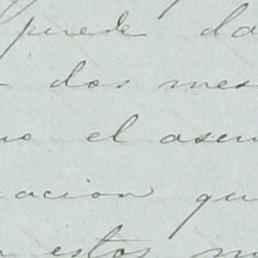 puede da
dos mes
no el asun
acion qu
estos